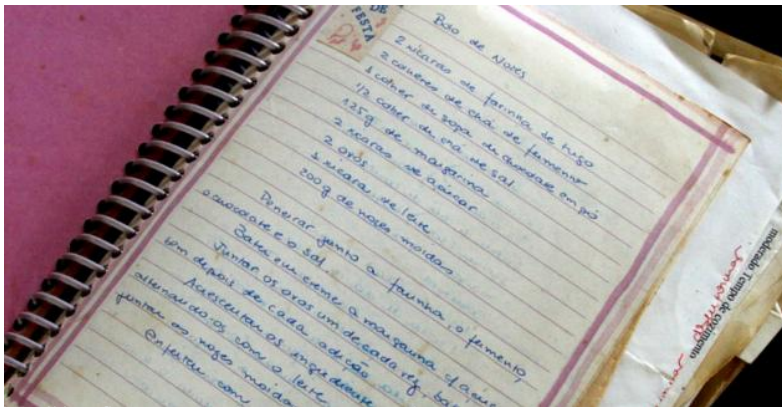 DE
FESTA
Bolo de Nozes
2 xícaras de farinha de trigo
2 colheres de chá de fermento
1 colher de sopa de chocolate em pó
1/2 colher de chá de sal
125g de margarina
2 xícaras de açúcar
2 ovos
1 xícara de leite
200g de nozes moídas
Peneirar junto a farinha, o fermento,
o chocolate e o sal.
Bater em creme a margarina c/ açúcar
Juntar os ovos um de cada vez, ba
bem depois de cada adição
Acrescentar os ingredientes
alternando-os com o leite
juntar as nozes moída
Enfeitar com
moderado Tempo de cozimento